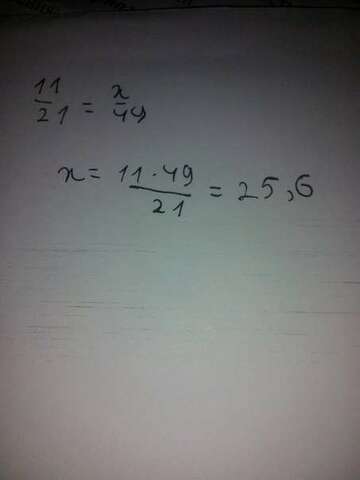 11/21 = x/49
x = 11·49/21 = 25,6